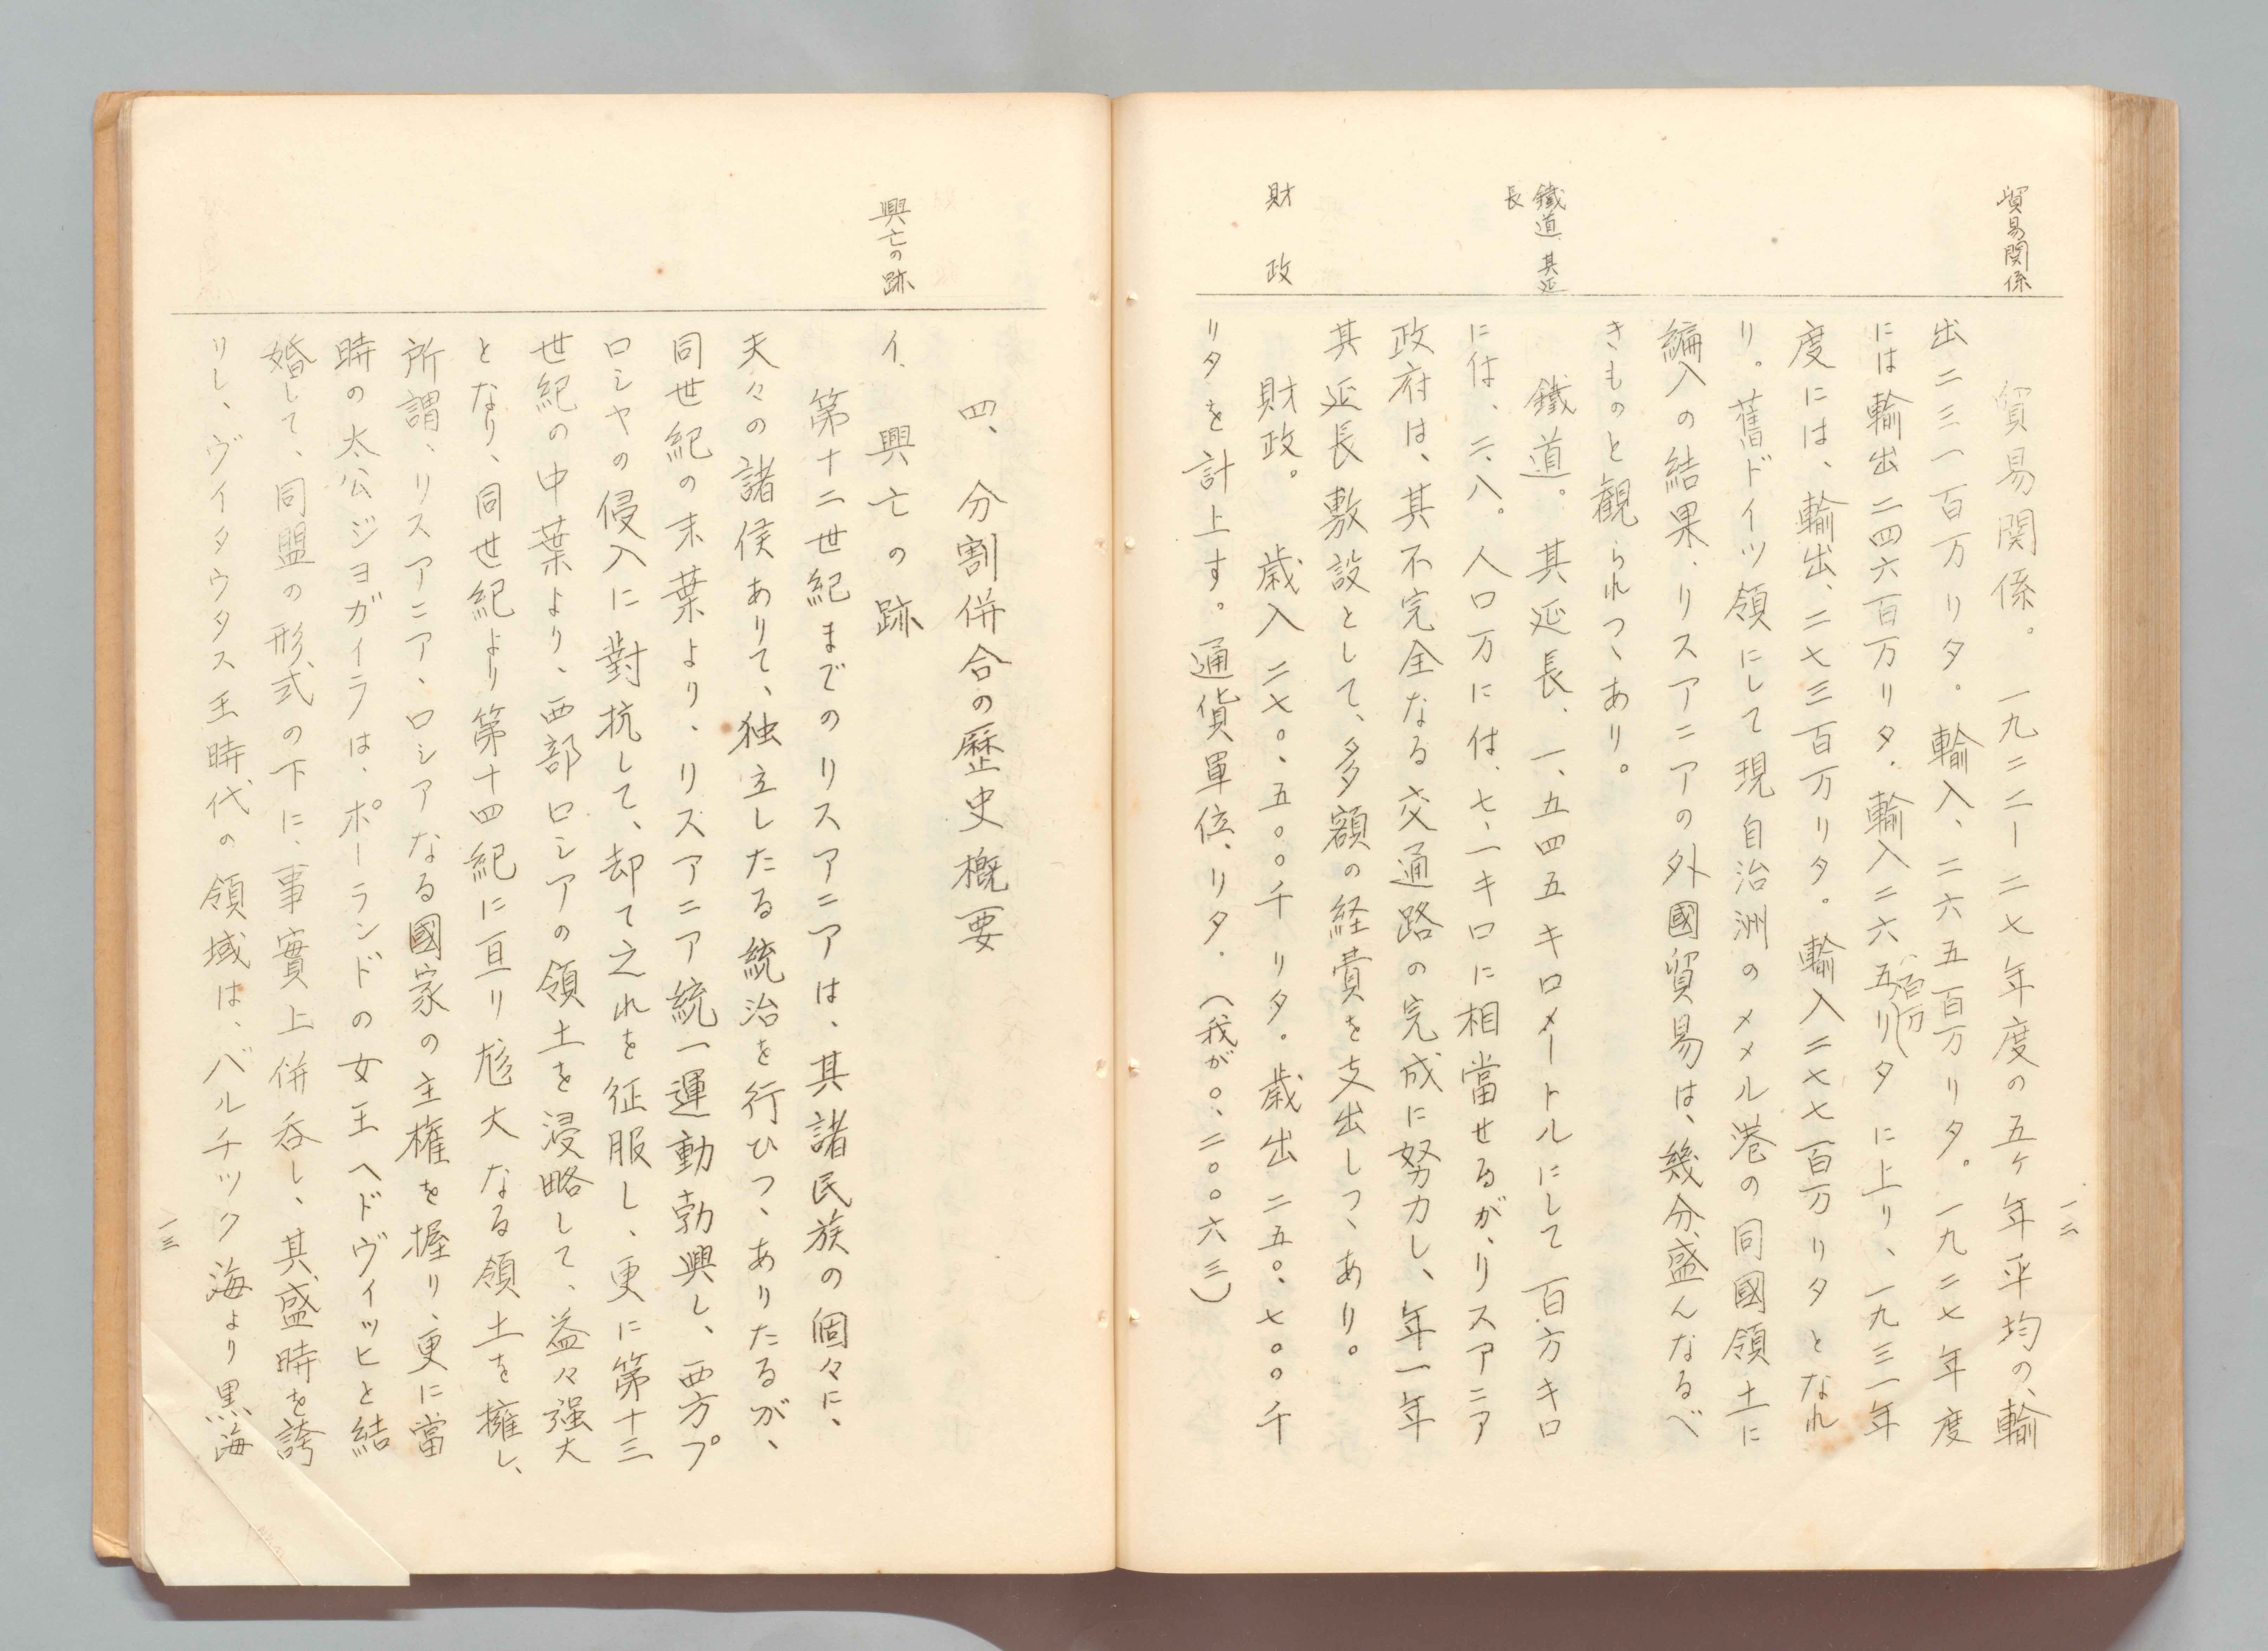 一二
貿易関係
貿易関係。一九二二ー二七年度の五ヶ年平均の、輸
出二三一百万リタ。輸入、二六五百万リタ。一九二七年度
には輸出二四六百万リタ、輸入二六五百万リタに上り、一九三一年
度には、輸出、二七三百万リタ。輸入二七七百万リタとなれ
り。舊ドイツ領にして現自治洲のメメル港の同國領土に
編入の結果、リスアニアの外國貿易は、幾分盛んなるべ
きものと観られつゝあり。
鐵道 其延
長
鐵道。其延長、一、五四五キロメートルにして百方キロ
には、二、八。人口万には、七、一キロに相當せるが、リスアニア
政府は、其不完全なる交通路の完成に努力し、年一年
其延長敷設として、多額の経費を支出しつゝあり。
財政
財政。歳入二七〇、五〇〇千リタ。歳出二五〇、七〇〇千
リタを計上す。通貨單位、リタ。(我が〇、二〇〇六三)
四、分割併合の歴史概要
興亡の跡
イ、興亡の跡
第十二世紀までのリスアニアは、其諸民族の個々に、
夫々の諸侯ありて、独立したる統治を行ひつゝありたるが、
同世紀の末葉より、リスアニア統一運動勃興し、西方プ
ロシヤの侵入に對抗して、却て之れを征服し、更に第十三
世紀の中葉より、西部ロシアの領土を浸略して、益々强大
となり、同世紀より第十四紀に亘り尨大なる領土を擁し、
所謂、リスアニア、ロシアなる國家の主権を握り、更に當
時の太公ジョガイラは、ポーランドの女王ヘドヴィッヒと結
婚して、同盟の形式の下に、事實上併呑し、其盛時を誇
りし、ヴイタウタス王時代の領域は、バルチック海より黒海
一三